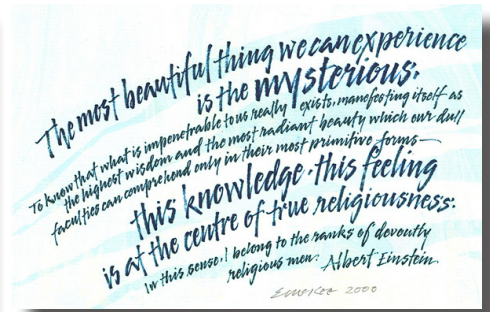 The most beautiful thing we can experience
is the mysterious.
To know that what is impenetrable to us really exists, manefesting itself as
the highest wisdom and the most radiant beauty which our dull
faculties can comprehend only in their most primitive forms—
this knowledge · this feeling
is at the centre of true religiousness.
In this sense, I belong to the ranks of devoutly
religious men. Albert Einstein.
2000